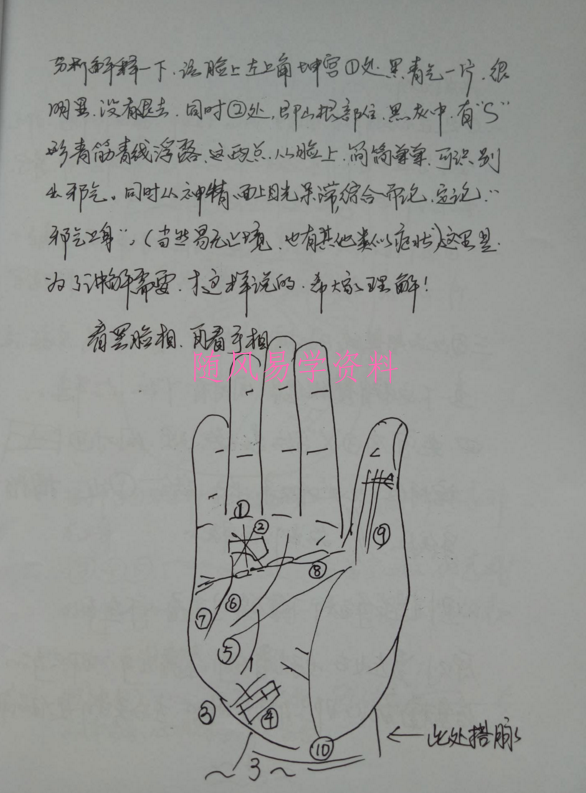 另析解释一下.该脸上左上角坤宫①处.黑青气一片.很
明显.没有退去.同时②处.即山根部位.黑灰中.有"S"
形青筋青线浮露.这两点.从脸上.简简单单.可识别
出邪气。同时从神精.面上目光呆滞综合而论.定论."
邪气上身".(当然易无止境.也有其他类似症状)这里是.
为了讲解需要.才这样说的.希大家理解!
看罢脸相.再看手相.
随风易学资料
①
②
⑨
⑧
⑦
⑥
⑤
③
④
⑩
←此处搭脉
~3~